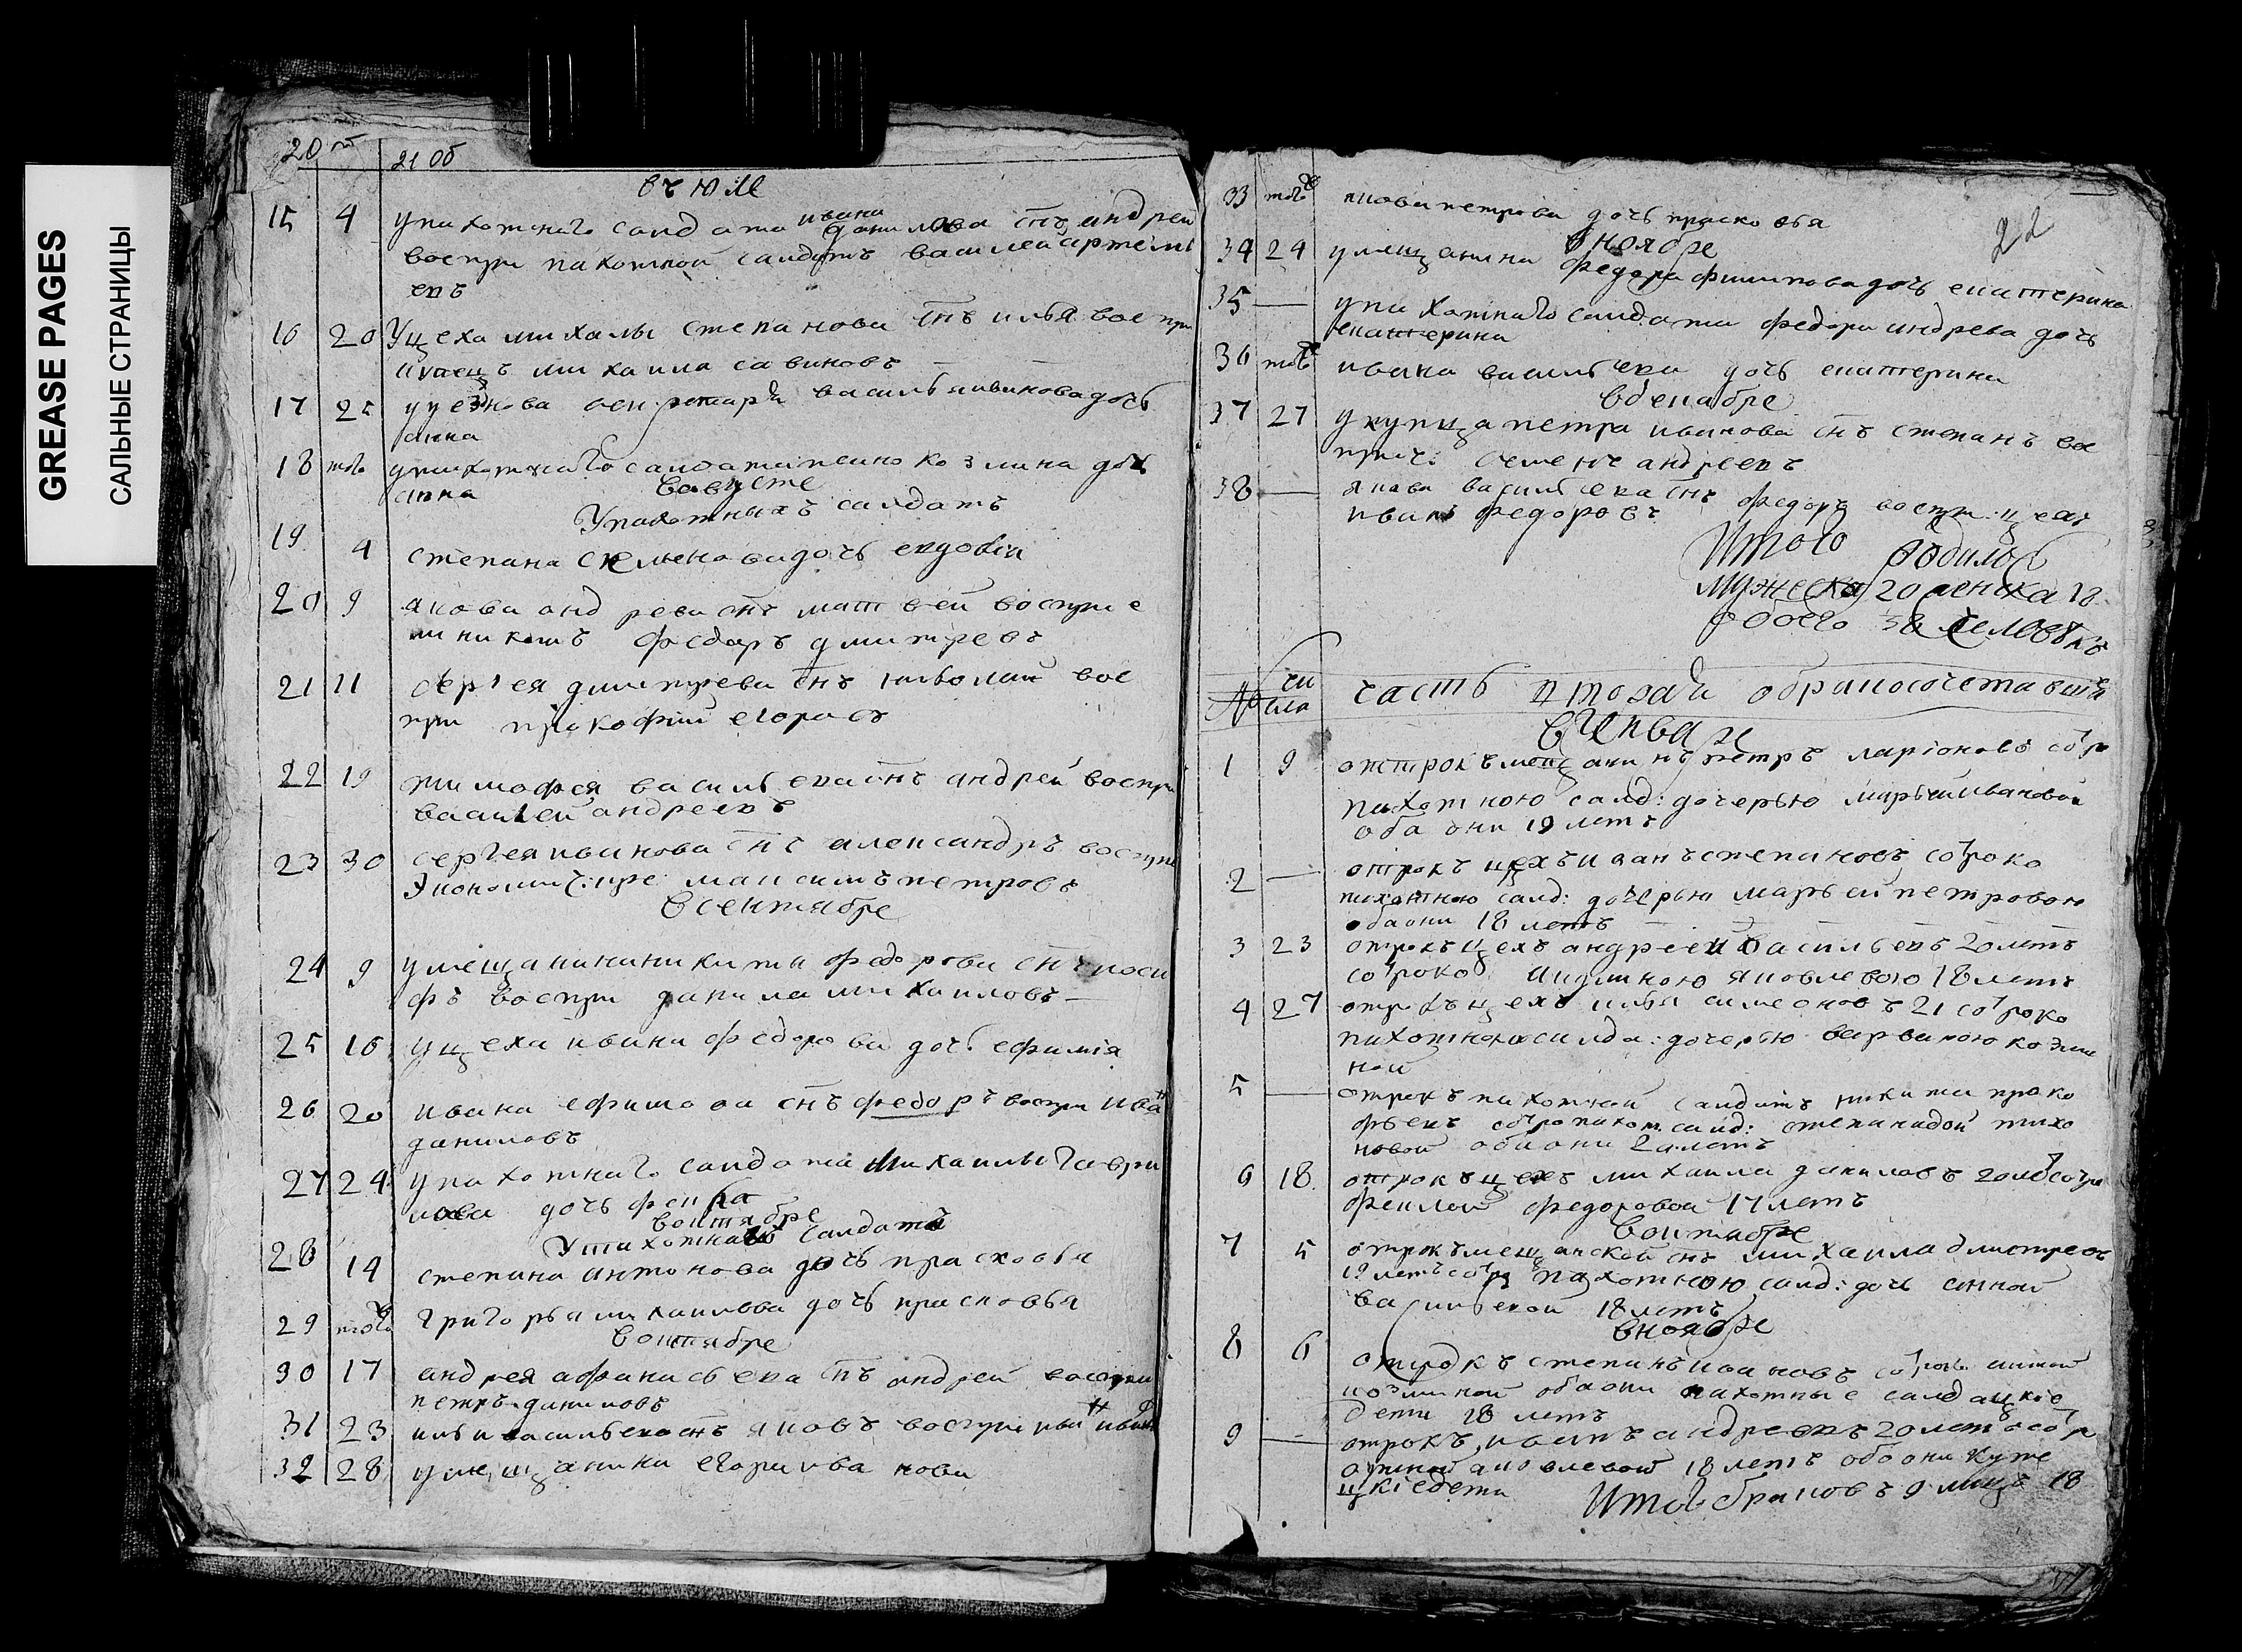 GREASE PAGES
САЛЬНЫЕ СТРАНИЦЫ
20
21 об
въ юле
15 4 у пахотнаго салдата ивана данилова снъ андреи
воспри пахотной салдатъ василей артемь
евъ
16 20 у цеха михаилы степанова снъ илья воспри
купецъ михаила савиновъ
17 25 уезнова секретаря василья ивинова дочь
анна
18 того у пахотнаго салдата козмина доч
анна
в августе
У пахотныхъ салдатъ
19 4 степана семенова дочь евдокия
20 9 якова андреева снъ матвей восприе
мникомъ федоръ дмитревъ
21 11 сергея дмитрева снъ николаи вос
при прокофии егоровъ
22 19 тимофея васильева снъ андрей воспри
василей андреевъ
23 30 сергея иванова снъ александръ воспри
Экономич: кре максимъ петровъ
в сентябре
24 9 у мещанина никиты федорова снъ иоси
фъ воспри данила михаиловъ
25 16 у цеха ивана федорова дочь ефимия
26 20 ивана ефимова снъ федоръ воспри иванъ
даниловъ
27 24 у пахотнаго салдата михаилы гаври
лова дочь фекла
в октябре
У пахотныхъ салдатъ
28 14 степана антонова дочь прасковья
29 того григорья михаилова дочь прасковья
в октябре
30 17 андрея афанасьева снъ андрей воспри
петръ даниловъ
31 23 ильи васильева снъ яковъ воспри иванъ ивановъ
32 28 у мещанина егора иванова
33 того якова петрова дочь прасковья
22
в ноябре
34 24 у мещанина федора филипова дочь екатерина
35 — у пахотнаго салдата федора андреева дочь
екатерина
36 того ивана васильева дочь екатерина
в декабре
37 27 у купца петра иванова снъ степанъ вос
прие: семенъ андреевъ
38 — якова васильева снъ федоръ воспри: цехъ
иванъ федоровъ
Итого родилось
мужеска 20 женска 18
обоего 38 человекъ
№ чи
сла часть втораѧ о бракосочетавшихся
в генваре
1 9 отрокъ мещанинъ петръ ларионовъ со отро
пахотною салд: дочерью марьей ивановой
оба они 19 летъ
2 — отрокъ цехъ иванъ степановъ со отроко
пахотною салд: дочерью марьей петровою
оба они 18 летъ
3 23 отрокъ цехъ андрей васильевъ 20 летъ
со отроко акулиною яковлевою 18 летъ
4 27 отрокъ цехъ илья симеоновъ 21 со отроко
пахотною салда: дочерью варварою козми
ной
5 — отрокъ пахотной салдатъ никита проко
фьевъ со отро пахот салд: степанидой тихо
новой оба они летъ
6 18 отрокъ цехъ михаила даниловъ 20 летъ со отро
феклой федоровой 17 летъ
в октябре
7 5 отрокъ мещанской снъ михаила дмитревъ
19 летъ со отро пахотною салд: доче анной
васильевой 18 летъ
в ноябре
8 6 отрокъ степанъ ивановъ со отроко анной
козминой оба они пахотные салдацкие
дети 18 летъ
9 — отрокъ иванъ андреевъ 20 летъ со отро
анной яковлевой 18 летъ оба они купе
цкие дети
Итого браковъ 9 лицъ 18